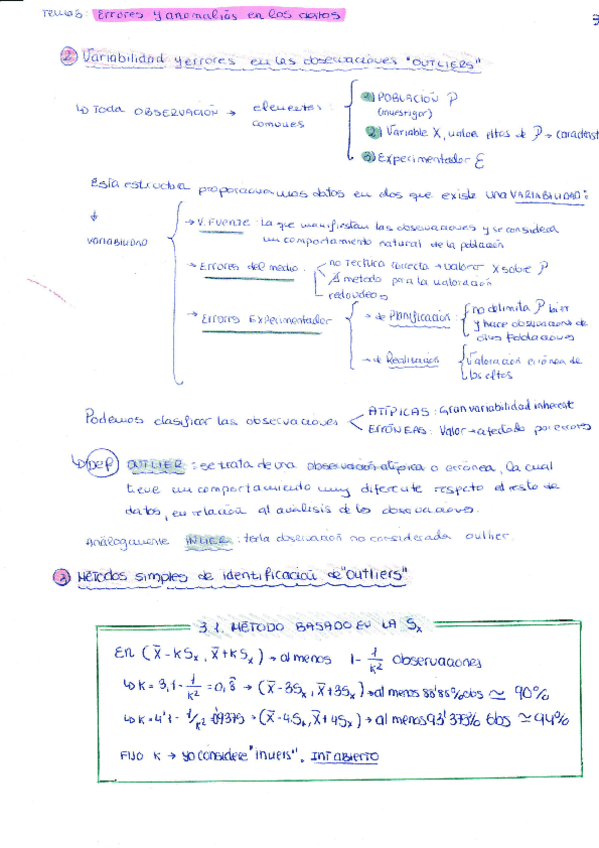 Tema 3: Errores y anomalías en los datos
3
② Variabilidad y errores en las observaciones "OUTLIERS"
↳ Toda OBSERVACIÓN → elementos comunes
① POBLACIÓN P
(investigar)
② Variable X, valor eltos de P → característ
③ Experimentador E
Esta estructura proporciona unos datos en los que existe una VARIABILIDAD:
↓
VARIABILIDAD
→ V. FUENTE: La que manifiestan las observaciones y se considera
un comportamiento natural de la población
→ Errores del medio:
no lectura correcta → valorar X sobre P
∄ método para la valoración
redondeos
→ Errores Experimentador
→ de Planificación:
no delimita P bien
y hace observaciones de
otras poblaciones
→ de Realización
Valoración errónea de
los eltos
Podemos clasificar las observaciones
ATÍPICAS: Gran variabilidad inherent
ERRÓNEAS: Valor → afectado por errores
↳ DEF OUTLIER: se trata de una observación atípica o errónea, la cual
tiene un comportamiento muy diferente respecto al resto de
datos, en relación al análisis de las observaciones.
Análogamente INLIER: toda observación no considerada outlier.
③ Métodos simples de identificación de "outliers"
3.1. MÉTODO BASADO EN LA Sx
En (x̄ - KSx, x̄ + KSx) → al menos 1 - 1/K² observaciones
↳ K = 3, 1 - 1/K² = 0,8̂ → (x̄ - 3Sx, x̄ + 3Sx) → al menos 88'88% obs ≃ 90%
↳ K = 4 1 - 1/K² = 0,9375 → (x̄ - 4Sx, x̄ + 4Sx) → al menos 93'375% obs ≃ 94%
FIJO K → yo considere "inliers", INT ABIERTO